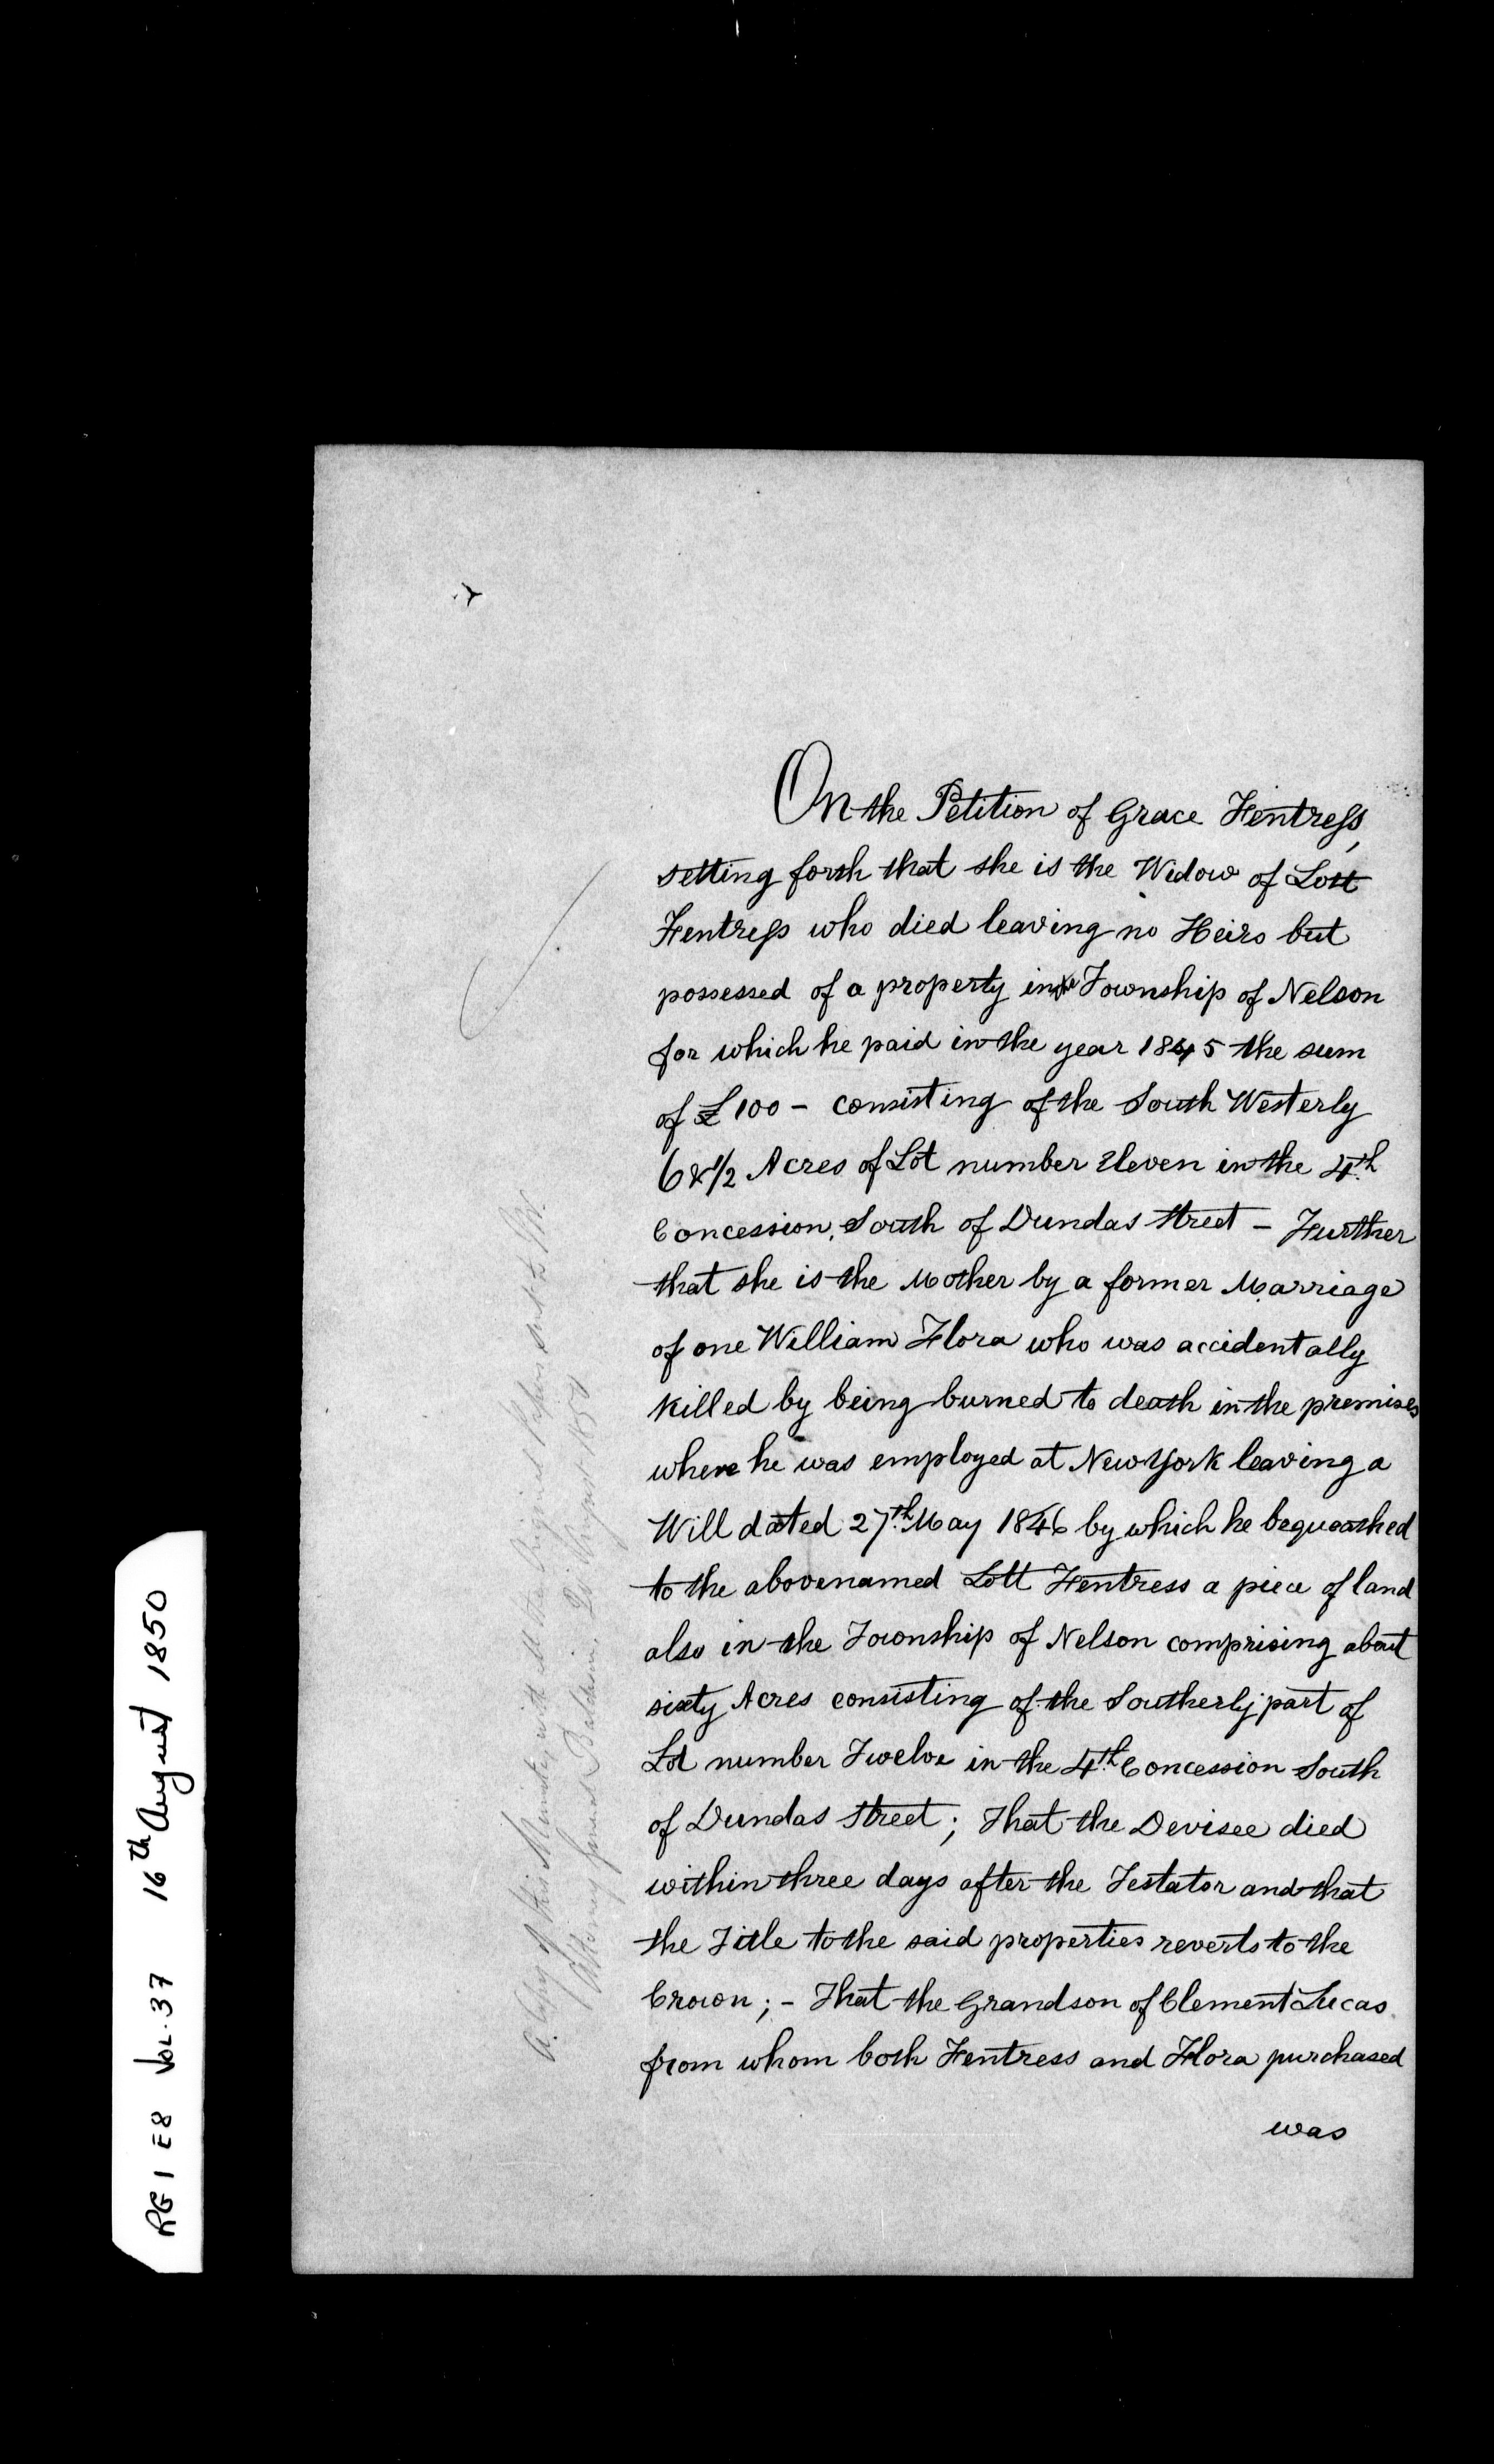 On the Petition of Grace Fentress,
setting forth that she is the Widow of Lott
Fentress who died leaving no Heirs but
possessed of a property in the Township of Nelson
for which he paid in the year 1845 the sum
of £100 - consisting of the South Westerly
6&1/2 Acres of Lot number Eleven in the 4th
Concession, South of Dundas Street - Further
that she is the Mother by a former Marriage
of one William Flora who was accidentally
killed by being burned to death in the premises
where he was employed at New York leaving a
Will dated 27th May 1846 by which he bequeathed
to the abovenamed Lott Fentress a piece of land
also in the Township of Nelson comprising about
sixty Acres consisting of the Southerly part of
Lot number Twelve in the 4th Concession South
of Dundas Street; That the Devisee died
within three days after the Testator and that
the Title to the said properties reverts to the
Crown; - That the Grandson of Clement Lucas
from whom both Fentress and Flora purchased
was
A Copy of this Minute, with all the Original Papers sent to
Attorney General Baldwin
RG 1 E8 VOL. 37 16th August 1850